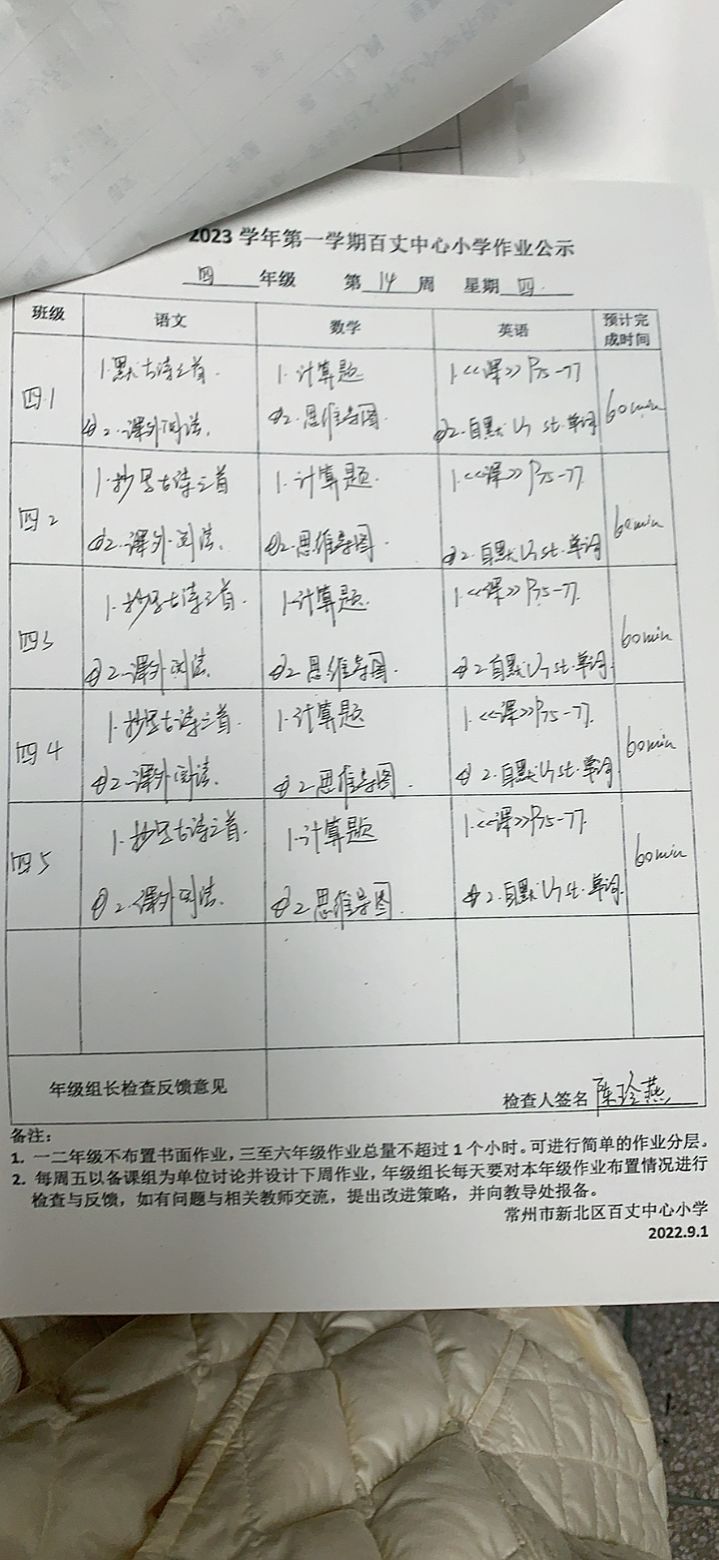 2023 学年第一学期百丈中心小学作业公示
四 年级 第 14 周 星期 四
班级 语文 数学 英语 预计完成时间
四1 1.默古诗三首. 1.计算题 1.<<课>>P75-77 60min
2.课外阅读. 2.思维导图. 2.自默U7 st.单词
四2 1.抄写古诗三首 1.计算题. 1.<<课>>P75-77. 60min
2.课外阅读. 2.思维导图. 2.自默U7 st.单词
四3 1.抄写古诗三首. 1.计算题. 1.<<课>>P75-77. 60min
2.课外阅读. 2.思维导图. 2.自默U7 st.单词.
四4 1.抄写古诗三首. 1.计算题 1.<<课>>P75-77. 60min
2.课外阅读. 2.思维导图. 2.自默U7 st.单词
四5 1.抄写古诗三首. 1.计算题 1.<<课>>P75-77. 60min
2.课外阅读. 2.思维导图. 2.自默U7 st.单词.
年级组长检查反馈意见
检查人签名 陈玲燕
备注：
1. 一二年级不布置书面作业，三至六年级作业总量不超过 1 个小时。可进行简单的作业分层。
2. 每周五以备课组为单位讨论并设计下周作业，年级组长每天要对本年级作业布置情况进行
检查与反馈，如有问题与相关教师交流，提出改进策略，并向教导处报备。
常州市新北区百丈中心小学
2022.9.1